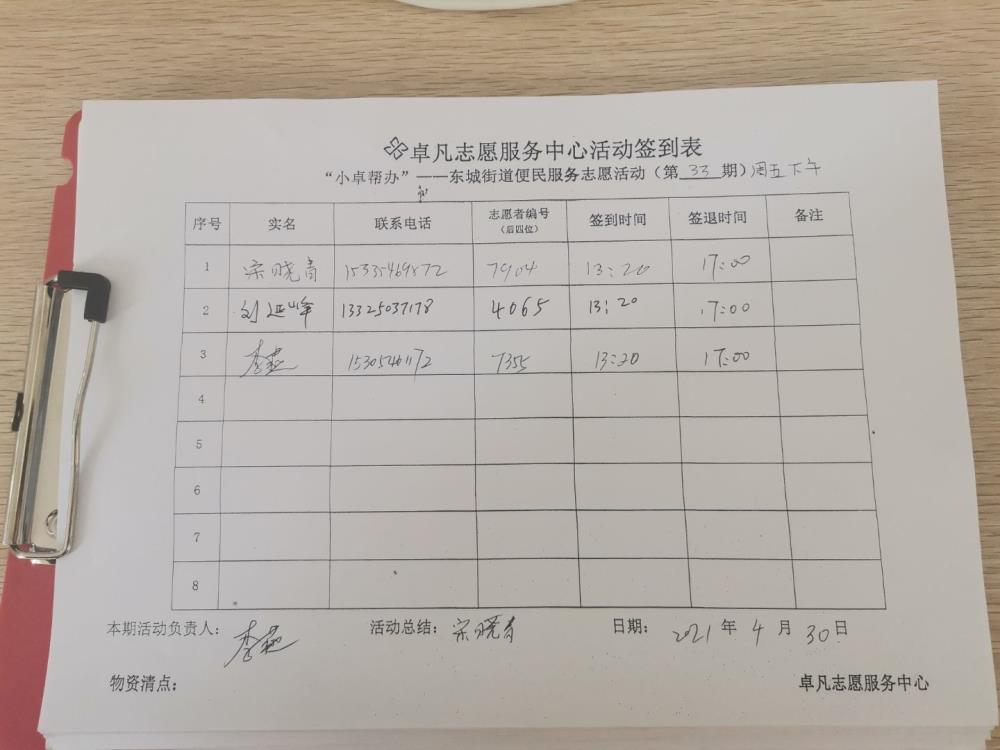 卓凡志愿服务中心活动签到表
“小卓帮办”——东城街道便民服务志愿活动（第 33 期）周五下午
序号 实名 联系电话 志愿者编号（后四位） 签到时间 签退时间 备注
1 宋晓青 15335469872 7904 13:20 17:00
2 刘延峰 13325037178 4065 13:20 17:00
3 李燕 15305461172 7355 13:20 17:00
4
5
6
7
8
本期活动负责人：李燕 活动总结：宋晓青 日期：2021年4月30日
物资清点： 卓凡志愿服务中心